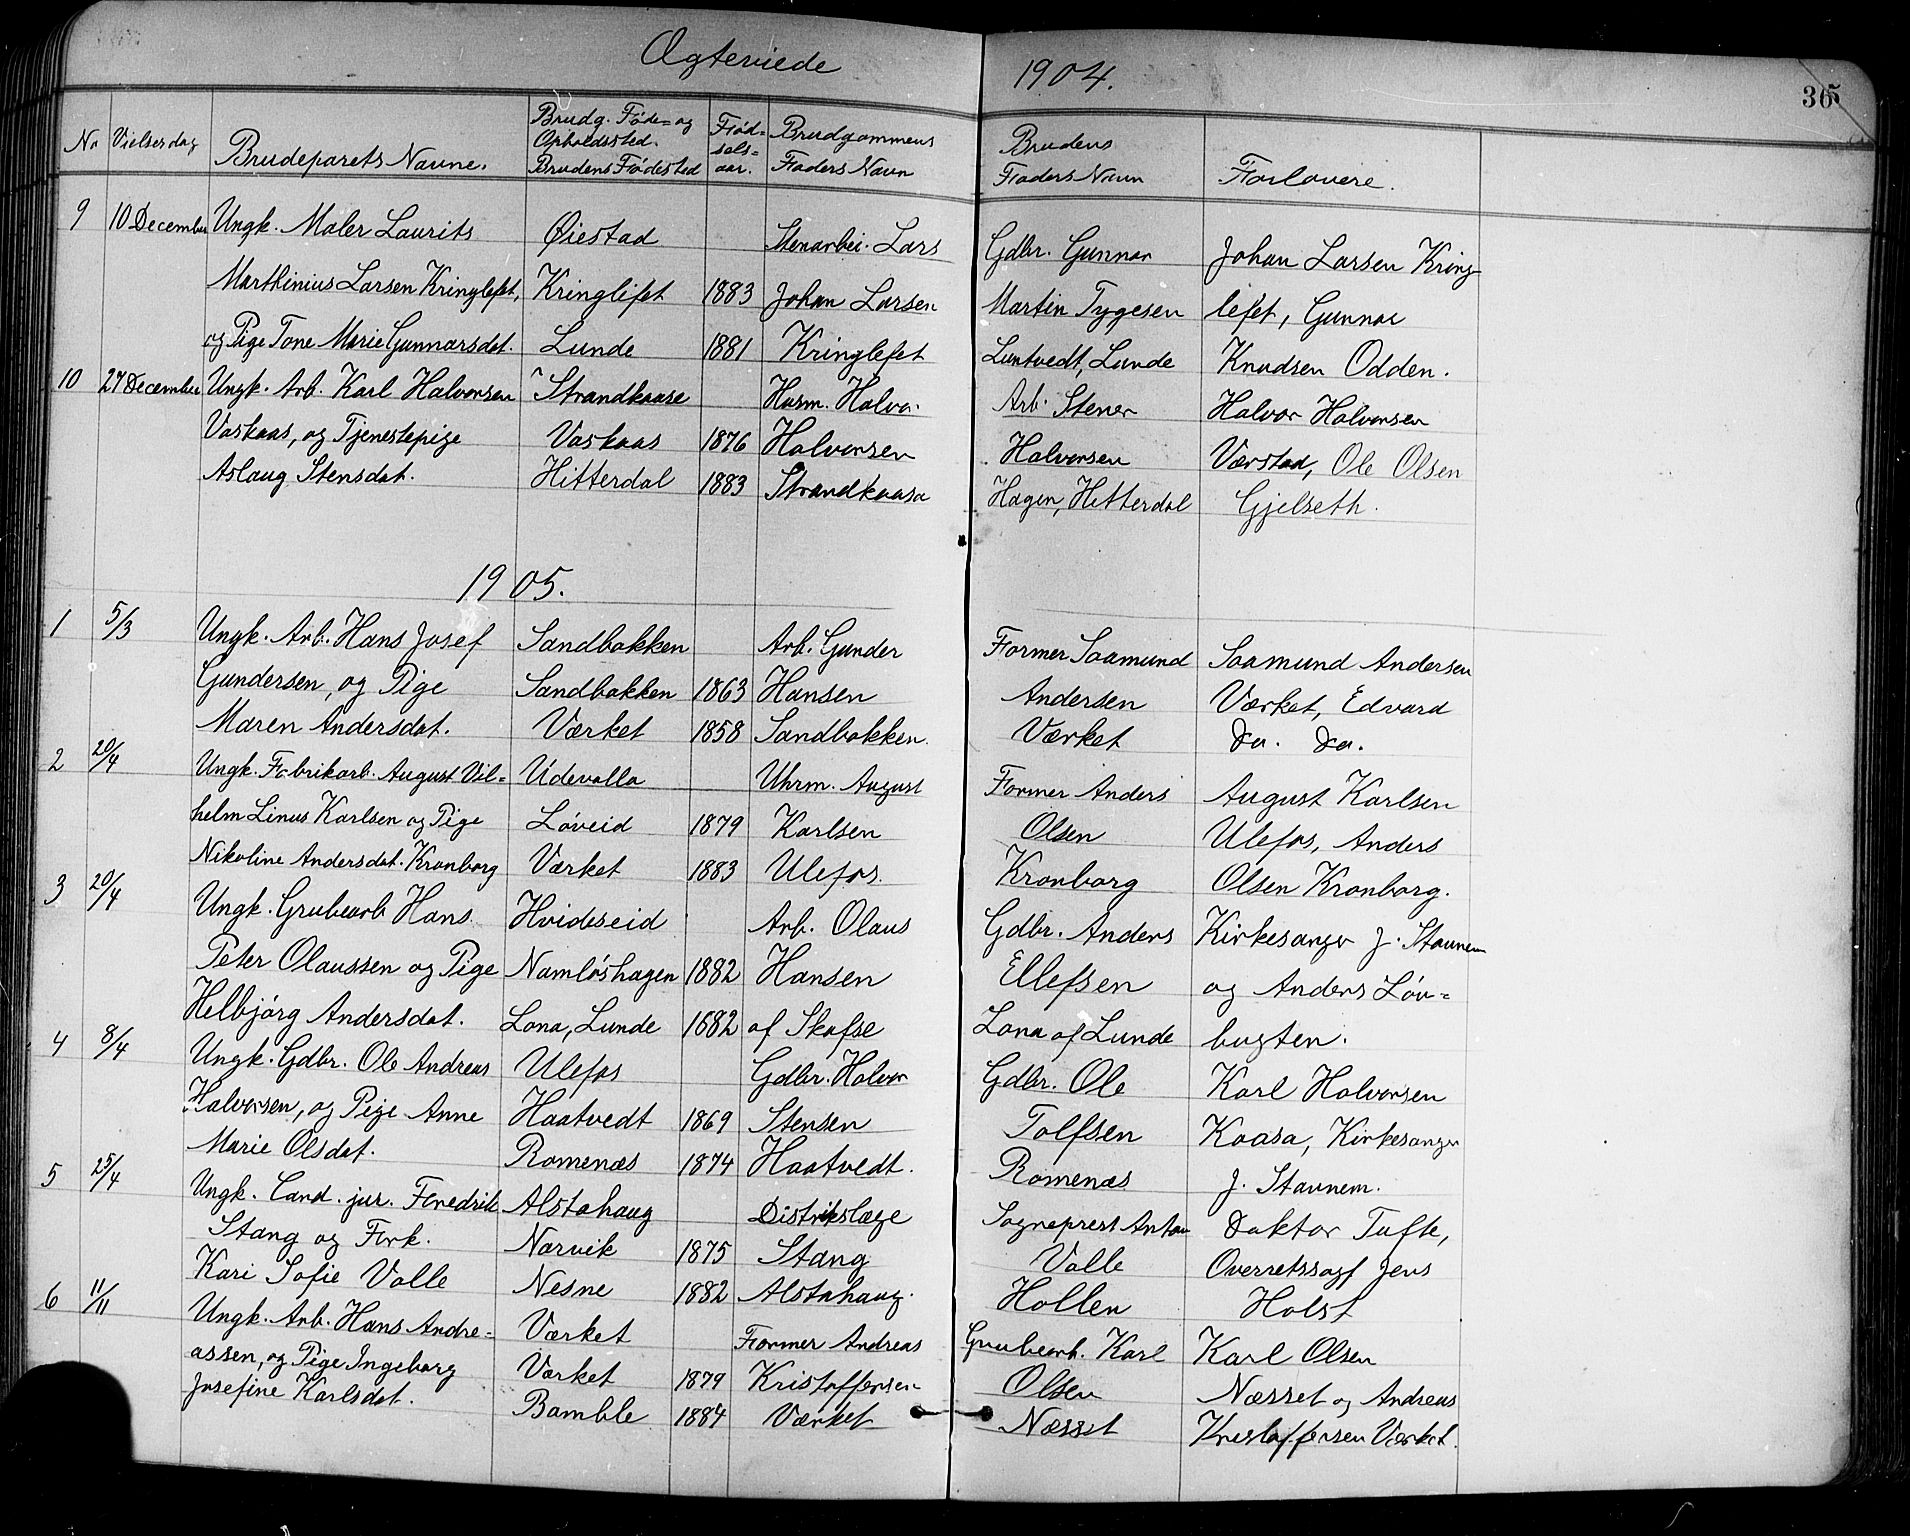 Ægteviede 1904. 365
No Vielsesdag Brudeparets Navne. Brudg. Føde= og Opholdssted. Brudens Fødested Fød=sels=aar. Brudgommens Faders Navn Brudens Faders Navn Forlovere.
9 10 December Ungk. Maler Laurits Øiestad Stenarbei. Lars Gdbr. Gunnar Johan Larsen Kring-
Marthinius Larsen Kringlefet, Kringlifet 1883 Johan Larsen Martin Tygesen lefet, Gunnar
og Pige Tone Marie Gunnarsdat. Lunde 1881 Kringlefet Luntvedt, Lunde Knudsen Odden.
10 27 December Ungk. Arb. Karl Halvorsen Strandkaase Husm. Halvor Arb. Stener Halvor Halvorsen
Vaskaas, og Tjenestepige Vaskaas 1876 Halvorsen Halvorsen Værstad, Ole Olsen
Aslaug Stensdat. Hitterdal 1883 Strandkaasa Hagen, Hitterdal Gjelseth.
1905.
1 5/3 Ungk. Arb. Hans Josef Sandbakken Arb. Gunder Former Saamund Saamund Andersen
Gundersen, og Pige Sandbakken 1863 Hansen Andersen Værket, Edvard
Maren Andersdat. Værket 1858 Sandbakken. Værket Do. Do.
2 20/4 Ungk. Fabrikarb. August Vil= Udevalla Uhrm. August Former Anders August Karlsen
helm Linus Karlsen og Pige Løveid 1879 Karlsen Olsen Ulefos, Anders
Nikoline Andersdat. Kronborg Værket 1883 Ulefos. Kronborg Olsen Kronborg.
3 20/4 Ungk. Grubearb Hans Hvideseid Arb. Olaus Gdbr. Anders Kirkesanger J. Stavnem
Peter Olaussen og Pige Namløshagen 1882 Hansen Ellefsen og Anders Løv=
Helbjørg Andersdat. Lona, Lunde 1882 af Skafse Lona af Lunde bugten.
4 8/4 Ungk. Gdbr. Ole Andreas Ulefos Gdbr. Halvor Gdbr. Ole Karl Halvorsen
Halvorsen, og Pige Anne Haatvedt 1869 Stensen Tolfsen Kaasa, Kirkesanger
Marie Olsdat. Romenæs 1874 Haatvedt. Romenæs J. Stavnem.
5 25/4 Ungk. Cand. jur. Fredrik Alstahaug Distrikslæge Sogneprest Anton Doktor Tufte,
Stang og Frk. Narvik 1875 Stang Valle Overretssagf Jens
Kari Sofie Valle Nesne 1882 Alstahaug. Hollen Holst
6 11/11 Ungk. Arb. Hans Andre= Værket Former Andreas Grubearb. Karl Karl Olsen
assen, og Pige Ingeborg Værket 1879 Kristoffersen Olsen Næsset og Andreas
Josefine Karlsdat. Bamble 1884 Værket Næsset Kristoffersen Værket.